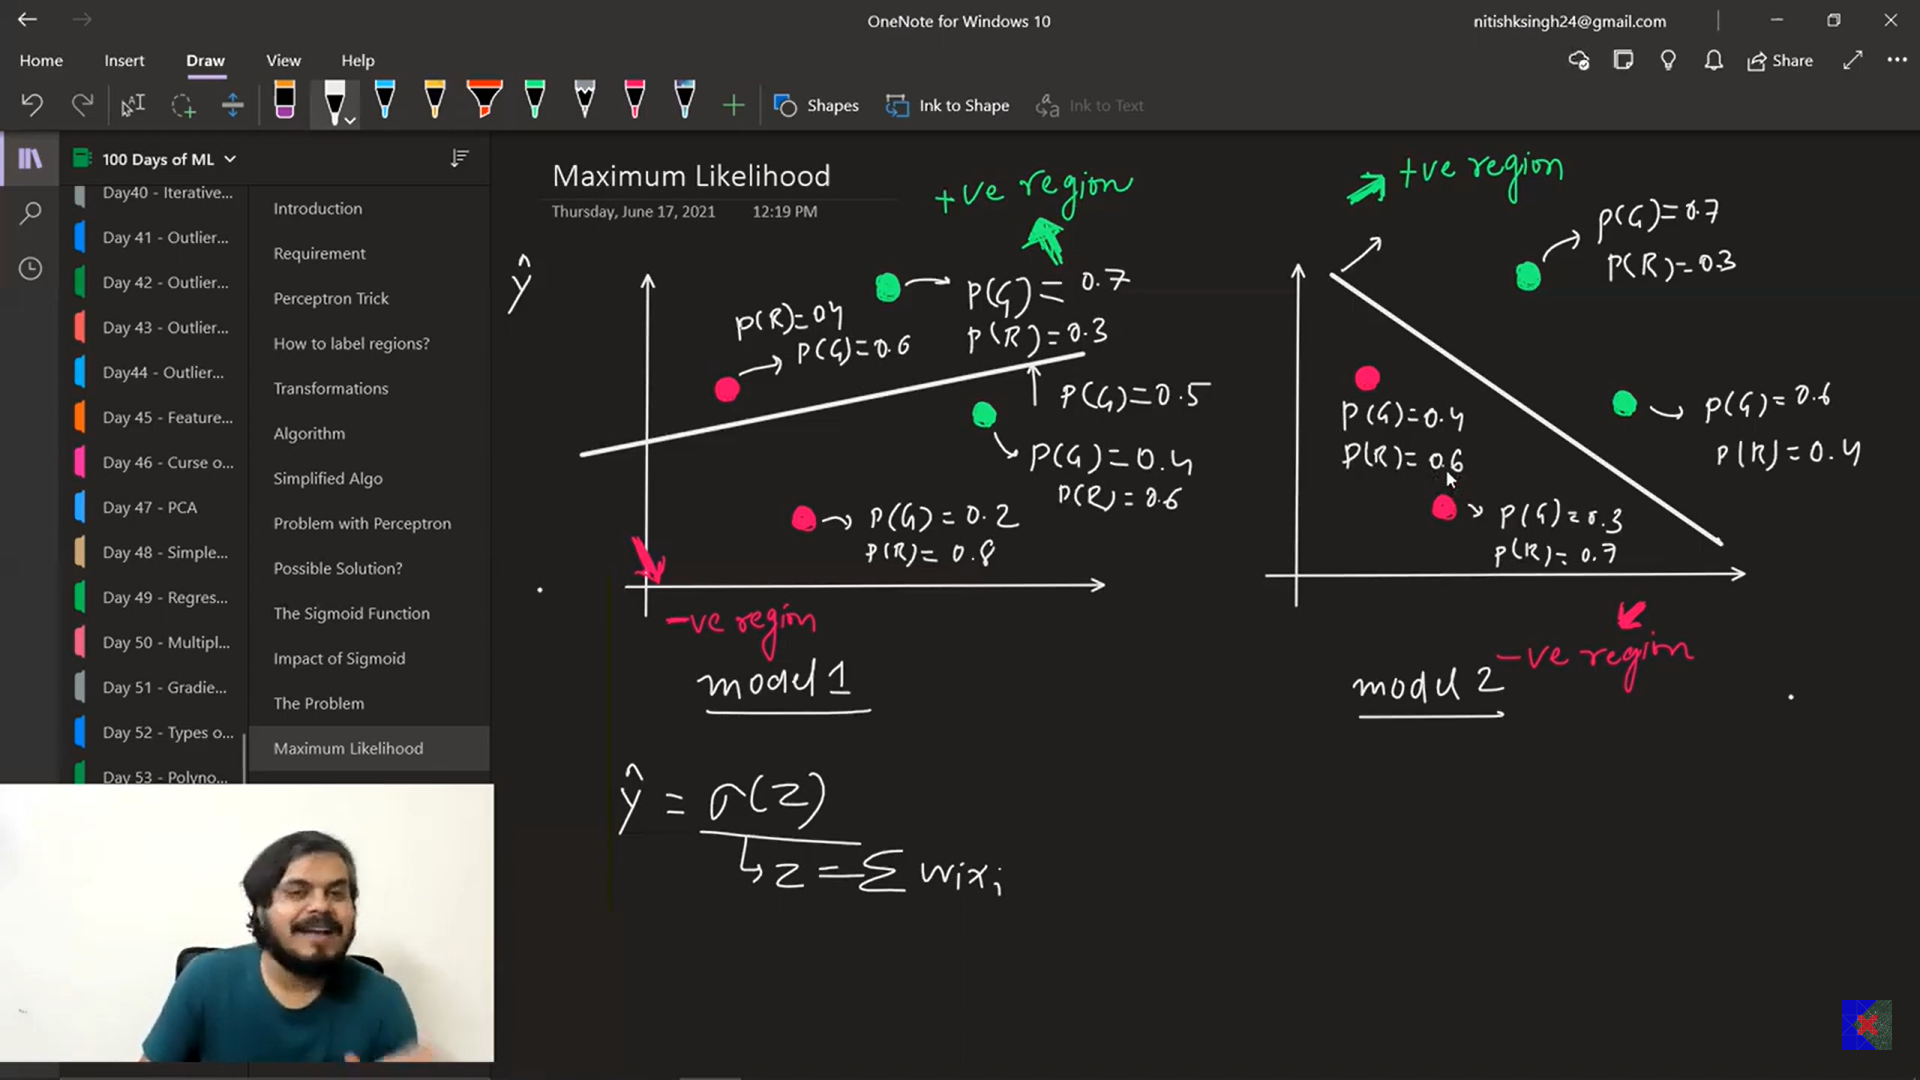 OneNote for Windows 10
nitishksingh24@gmail.com
Home
Insert
Draw
View
Help
Share
Shapes
Ink to Shape
Ink to Text
100 Days of ML
Day40 - Iterative...
Day 41 - Outlier...
Day 42 - Outlier...
Day 43 - Outlier...
Day44 - Outlier...
Day 45 - Feature...
Day 46 - Curse o...
Day 47 - PCA
Day 48 - Simple...
Day 49 - Regres...
Day 50 - Multipl...
Day 51 - Gradie...
Day 52 - Types o...
Day 53 - Polyno...
Introduction
Requirement
Perceptron Trick
How to label regions?
Transformations
Algorithm
Simplified Algo
Problem with Perceptron
Possible Solution?
The Sigmoid Function
Impact of Sigmoid
The Problem
Maximum Likelihood
Maximum Likelihood
Thursday, June 17, 2021 12:19 PM
+ve region
ŷ
P(R)=04
P(G)=0.6
P(G)=0.7
P(R)=0.3
P(G)=0.5
P(G)=0.4
P(R)=0.6
P(G)=0.2
P(R)=0.8
-ve region
model 1
+ve region
P(G)=0.7
P(R)=0.3
P(G)=0.4
P(R)=0.6
P(G)=0.6
P(R)=0.4
P(G)=0.3
P(R)=0.7
-ve region
model 2
ŷ = σ(z)
↳z=Σ wixi